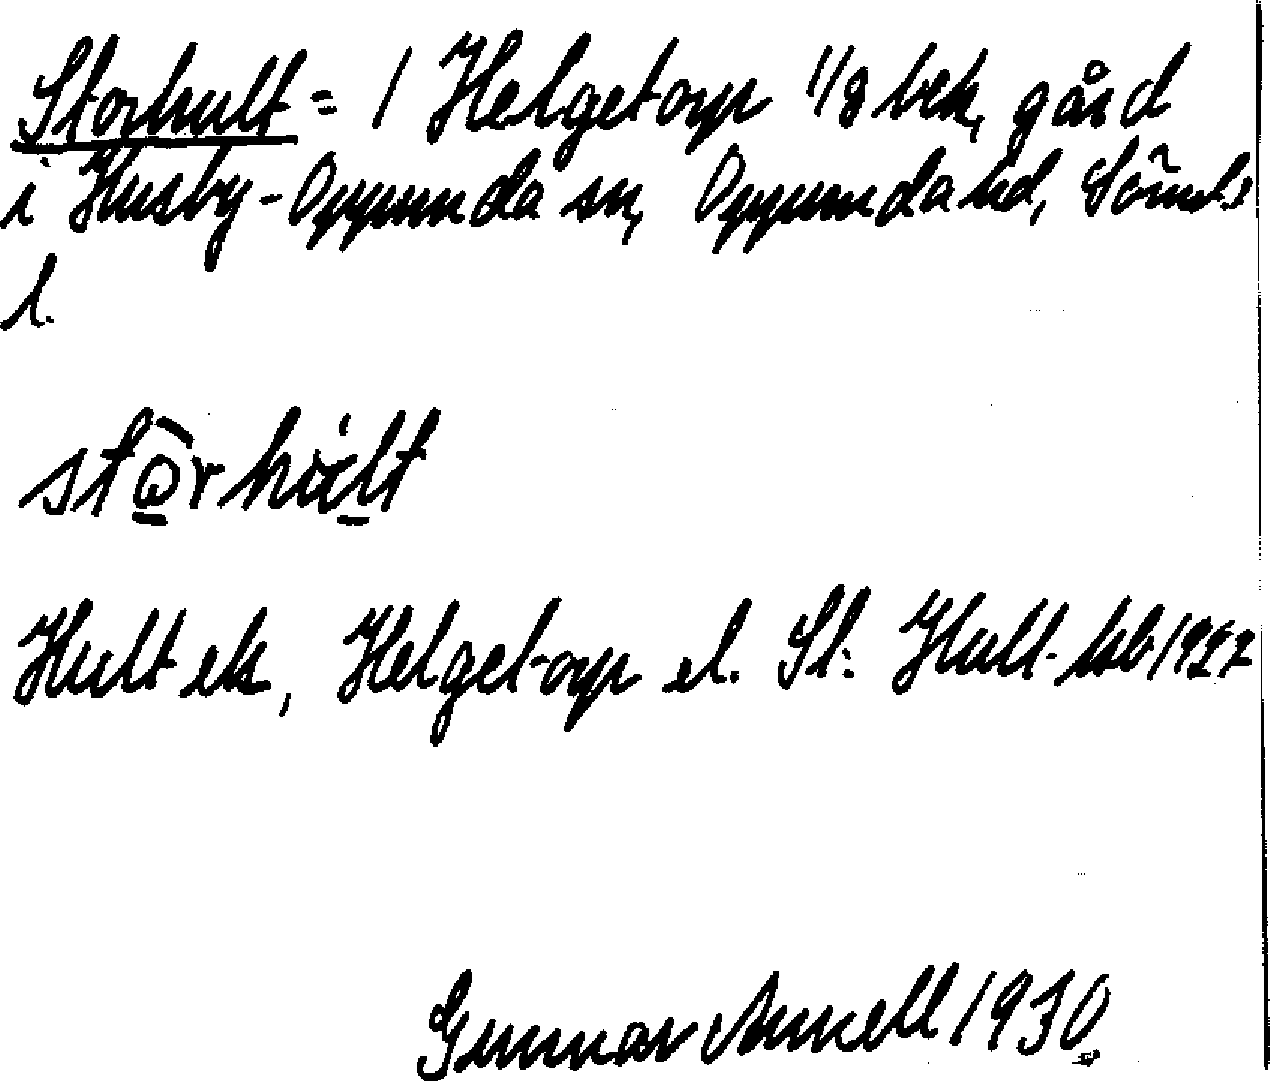 Storhult = 1 Helgetorp 1/8 bek, gård
i Husby-Oppunda sn, Oppunda hd, Söml.s
l.
Hult ek, Helgetorp el. St: Hult- kb 1927
Gunnar 1930